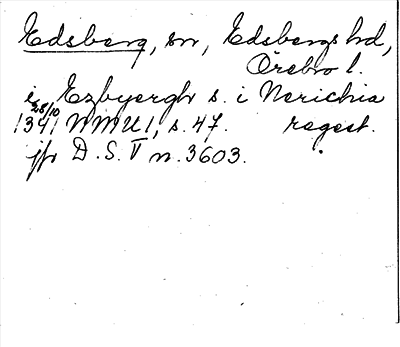 Edsberg, sn, Edsbergs hd,
Örebro l.
i Ezbyergh s. i Nerichia
28/10
1341 NMU 1, s. 47. regest.
jfr D. S. V n. 3603.